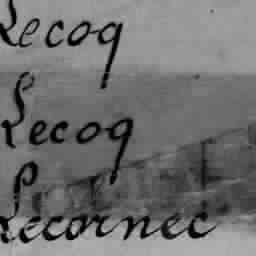 Lecoq
Lecoq
Lecornec